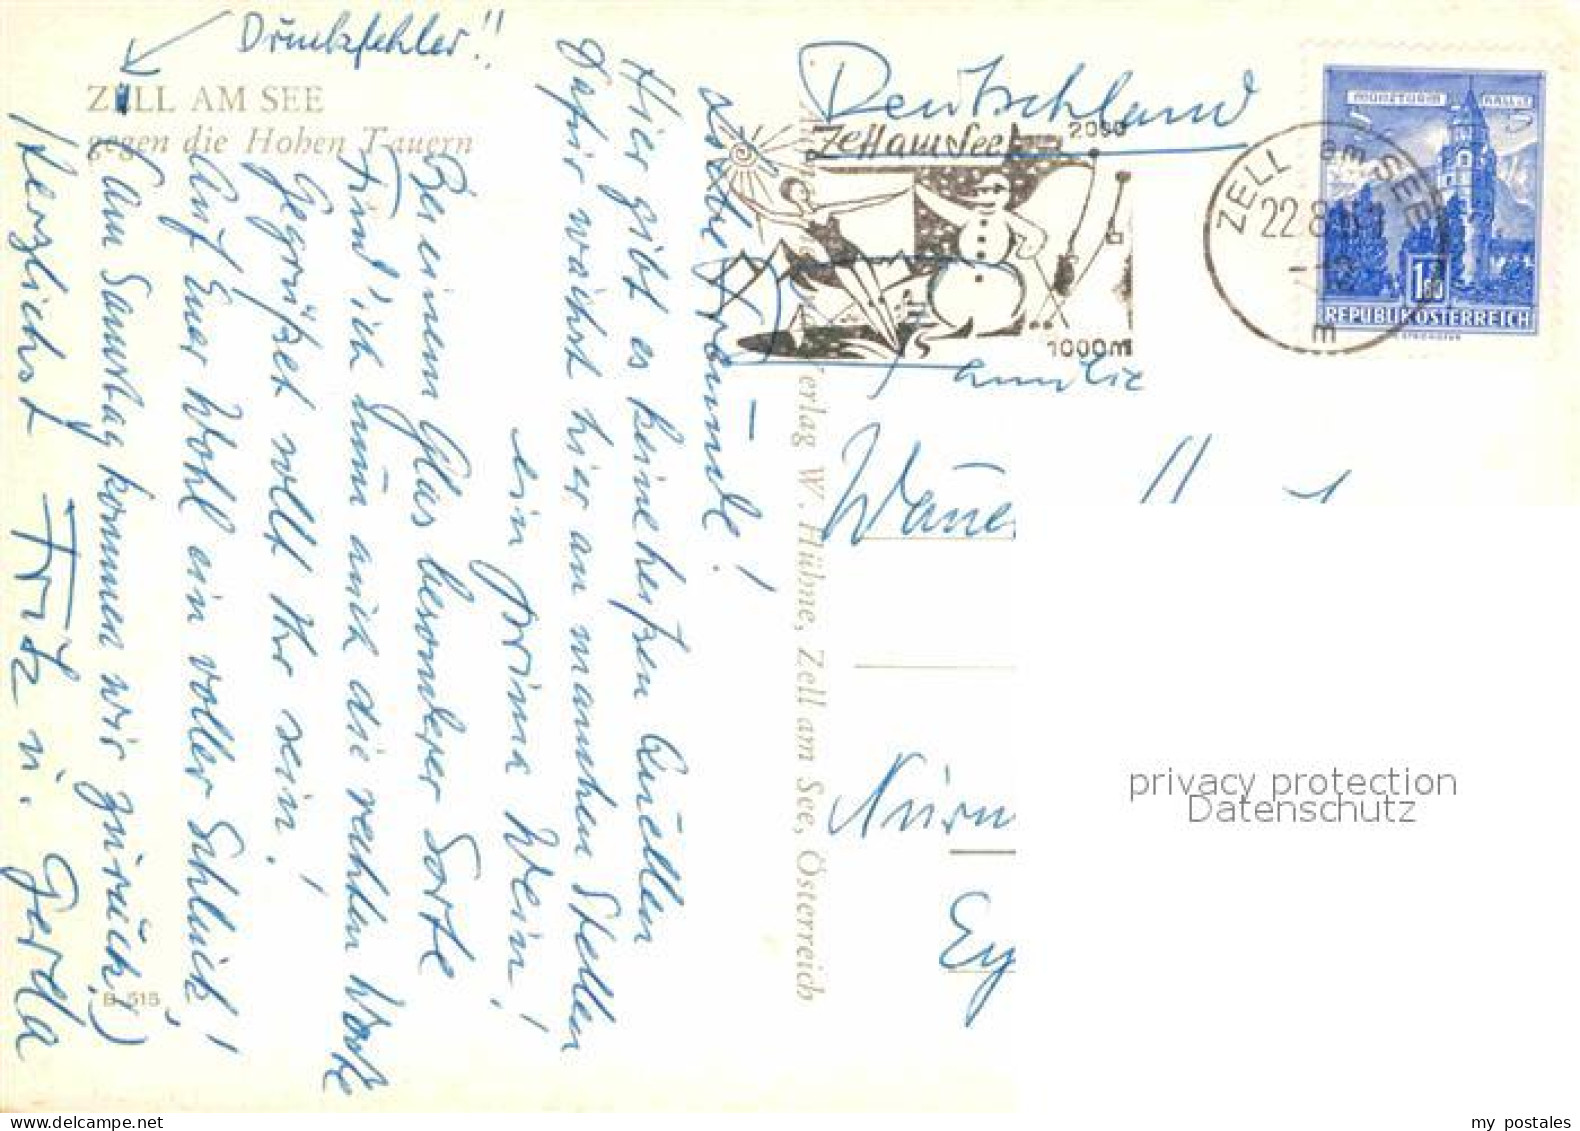 Druckfehler!!
ZELL AM SEE
gegen die Hohen Tauern
Liebe Freunde!
Hier gibt es keine heißen Quellen
dafür wächst hier an manchen Stellen
ein prima Wein!
Bei einem Glas besonderer Sorte
find' ich dann auch die rechten Worte
Gegrüßet sollt Ihr sein!
Auf Euer Wohl ein voller Schluck!
(Am Samstag kommen wir zurück!)
Herzlichst Fritz u. Gerda
B 515
Verlag W. Hühne, Zell am See, Österreich
Deutschland
Zell am See
2000
1000m
ZELL am SEE
22.8.
1.80
REPUBLIK ÖSTERREICH
Familie
privacy protection
Datenschutz
my postales